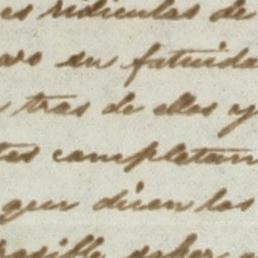 es ridiculas de
su fatuida
tras de ellos y
tes completan
que dicen las
saber